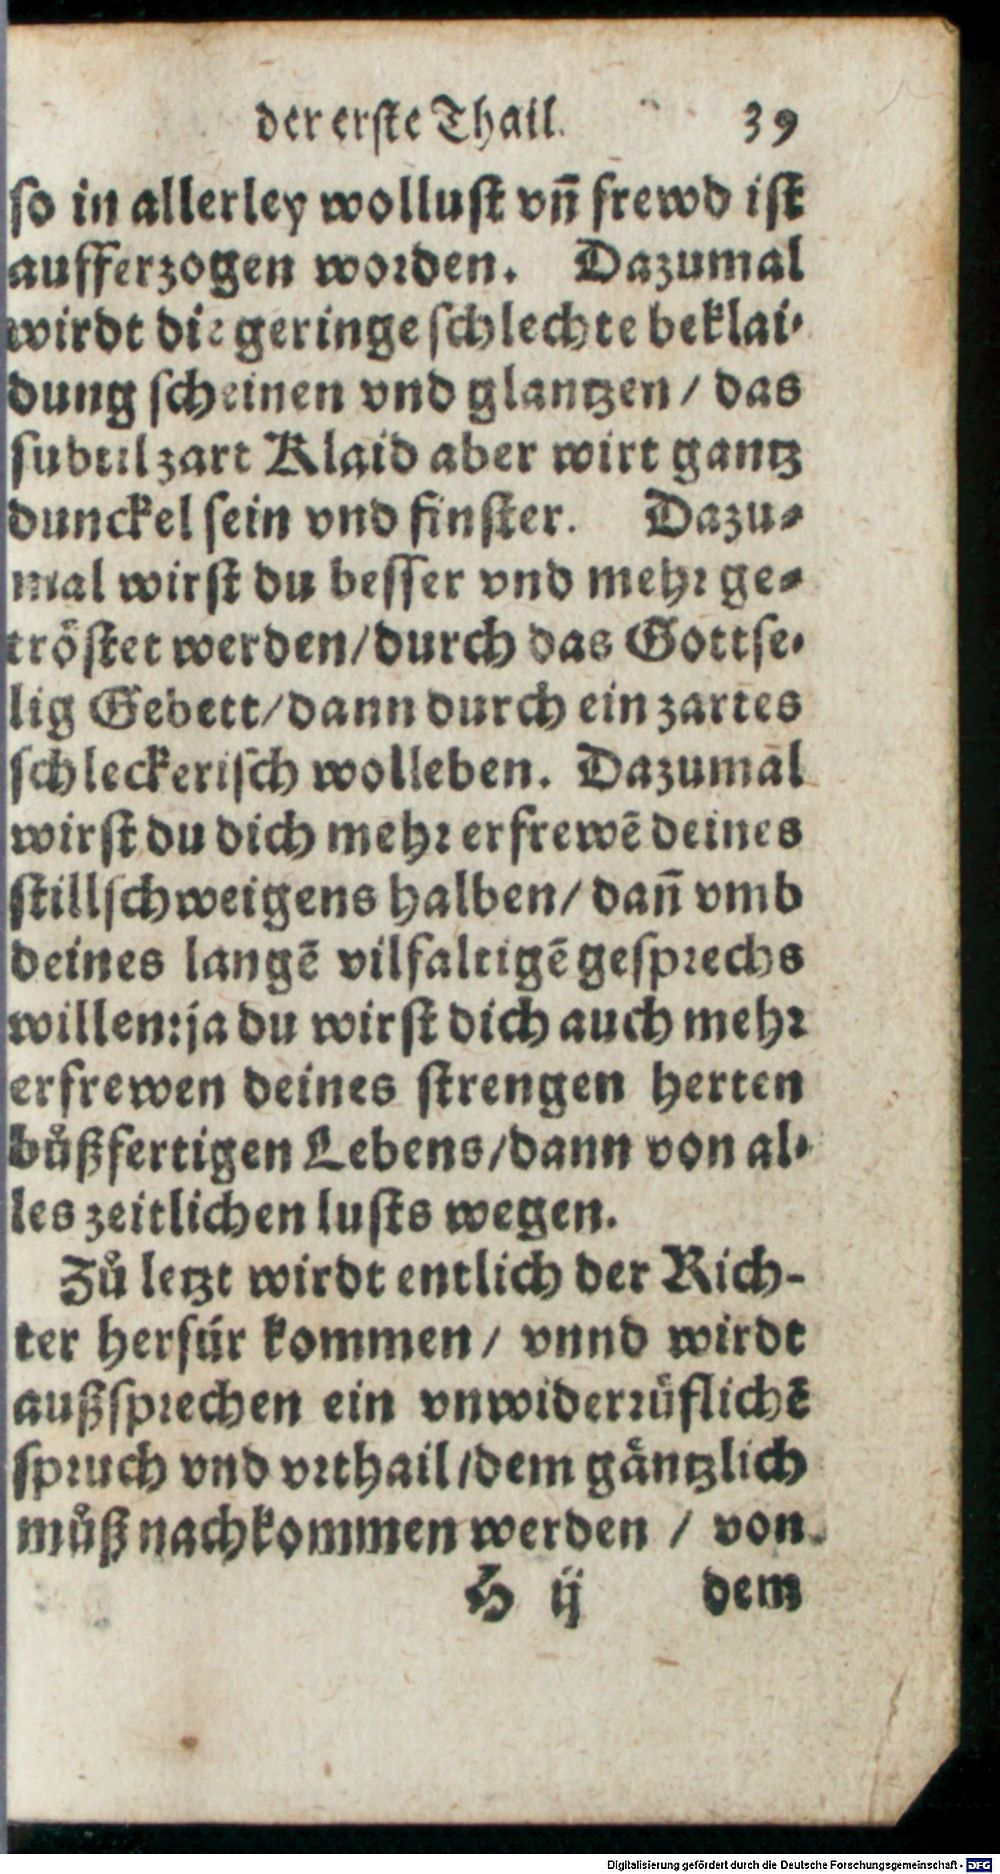 der erste Thail. 39
so in allerley wollust vñ frewd ist
aufferzogen worden. Dazumal
wirdt die geringe schlechte beklai-
dung scheinen vnd glantzen / das
subtil zart Klaid aber wirt gantz
dunckel sein vnd finster. Dazu-
mal wirst du besser vnd mehr ge-
tröstet werden / durch das Gottse-
lig Gebett / dann durch ein zartes
schleckerisch wolleben. Dazumal
wirst du dich mehr erfrewẽ deines
stillschweigens halben / dañ vmb
deines langẽ vilfaltigẽ gesprechs
willen: ja du wirst dich auch mehr
erfrewen deines strengen herten
bůßfertigen Lebens / dann von al-
les zeitlichen lusts wegen.
Zů letzt wirdt entlich der Rich-
ter herfúr kommen / vnnd wirdt
außsprechen ein vnwiderrüflichẽ
spruch vnd vrthail / dem gäntzlich
můß nachkommen werden / von
H ij dem
Digitalisierung gefördert durch die Deutsche Forschungsgemeinschaft - DFG